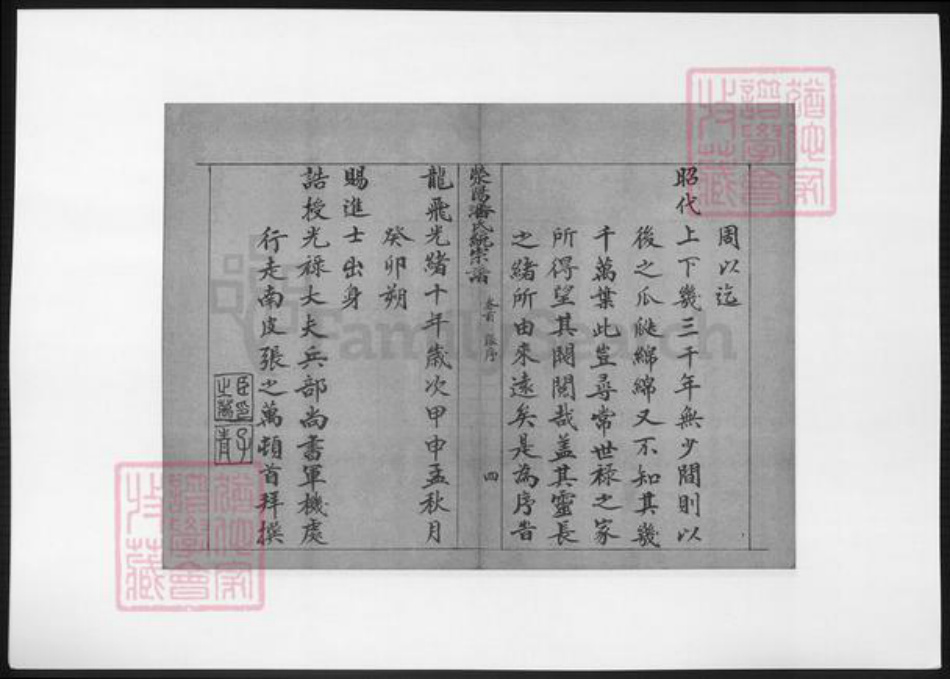 周以迄
昭代上下幾三千年無少間則以
後之瓜瓞綿綿又不知其幾
千萬葉此豈尋常世祿之家
所得望其閥閱哉蓋其靈長
之緒所由來遠矣是為序旹
滎陽潘氏統宗譜 卷首 張序 四
龍飛光緒十年歲次甲申孟秋月
癸卯朔
賜進士出身
誥授光祿大夫兵部尚書軍機處
行走南皮張之萬頓首拜撰
臣印之萬
子青
FamilySearch
譜學會收藏
譜學會收藏